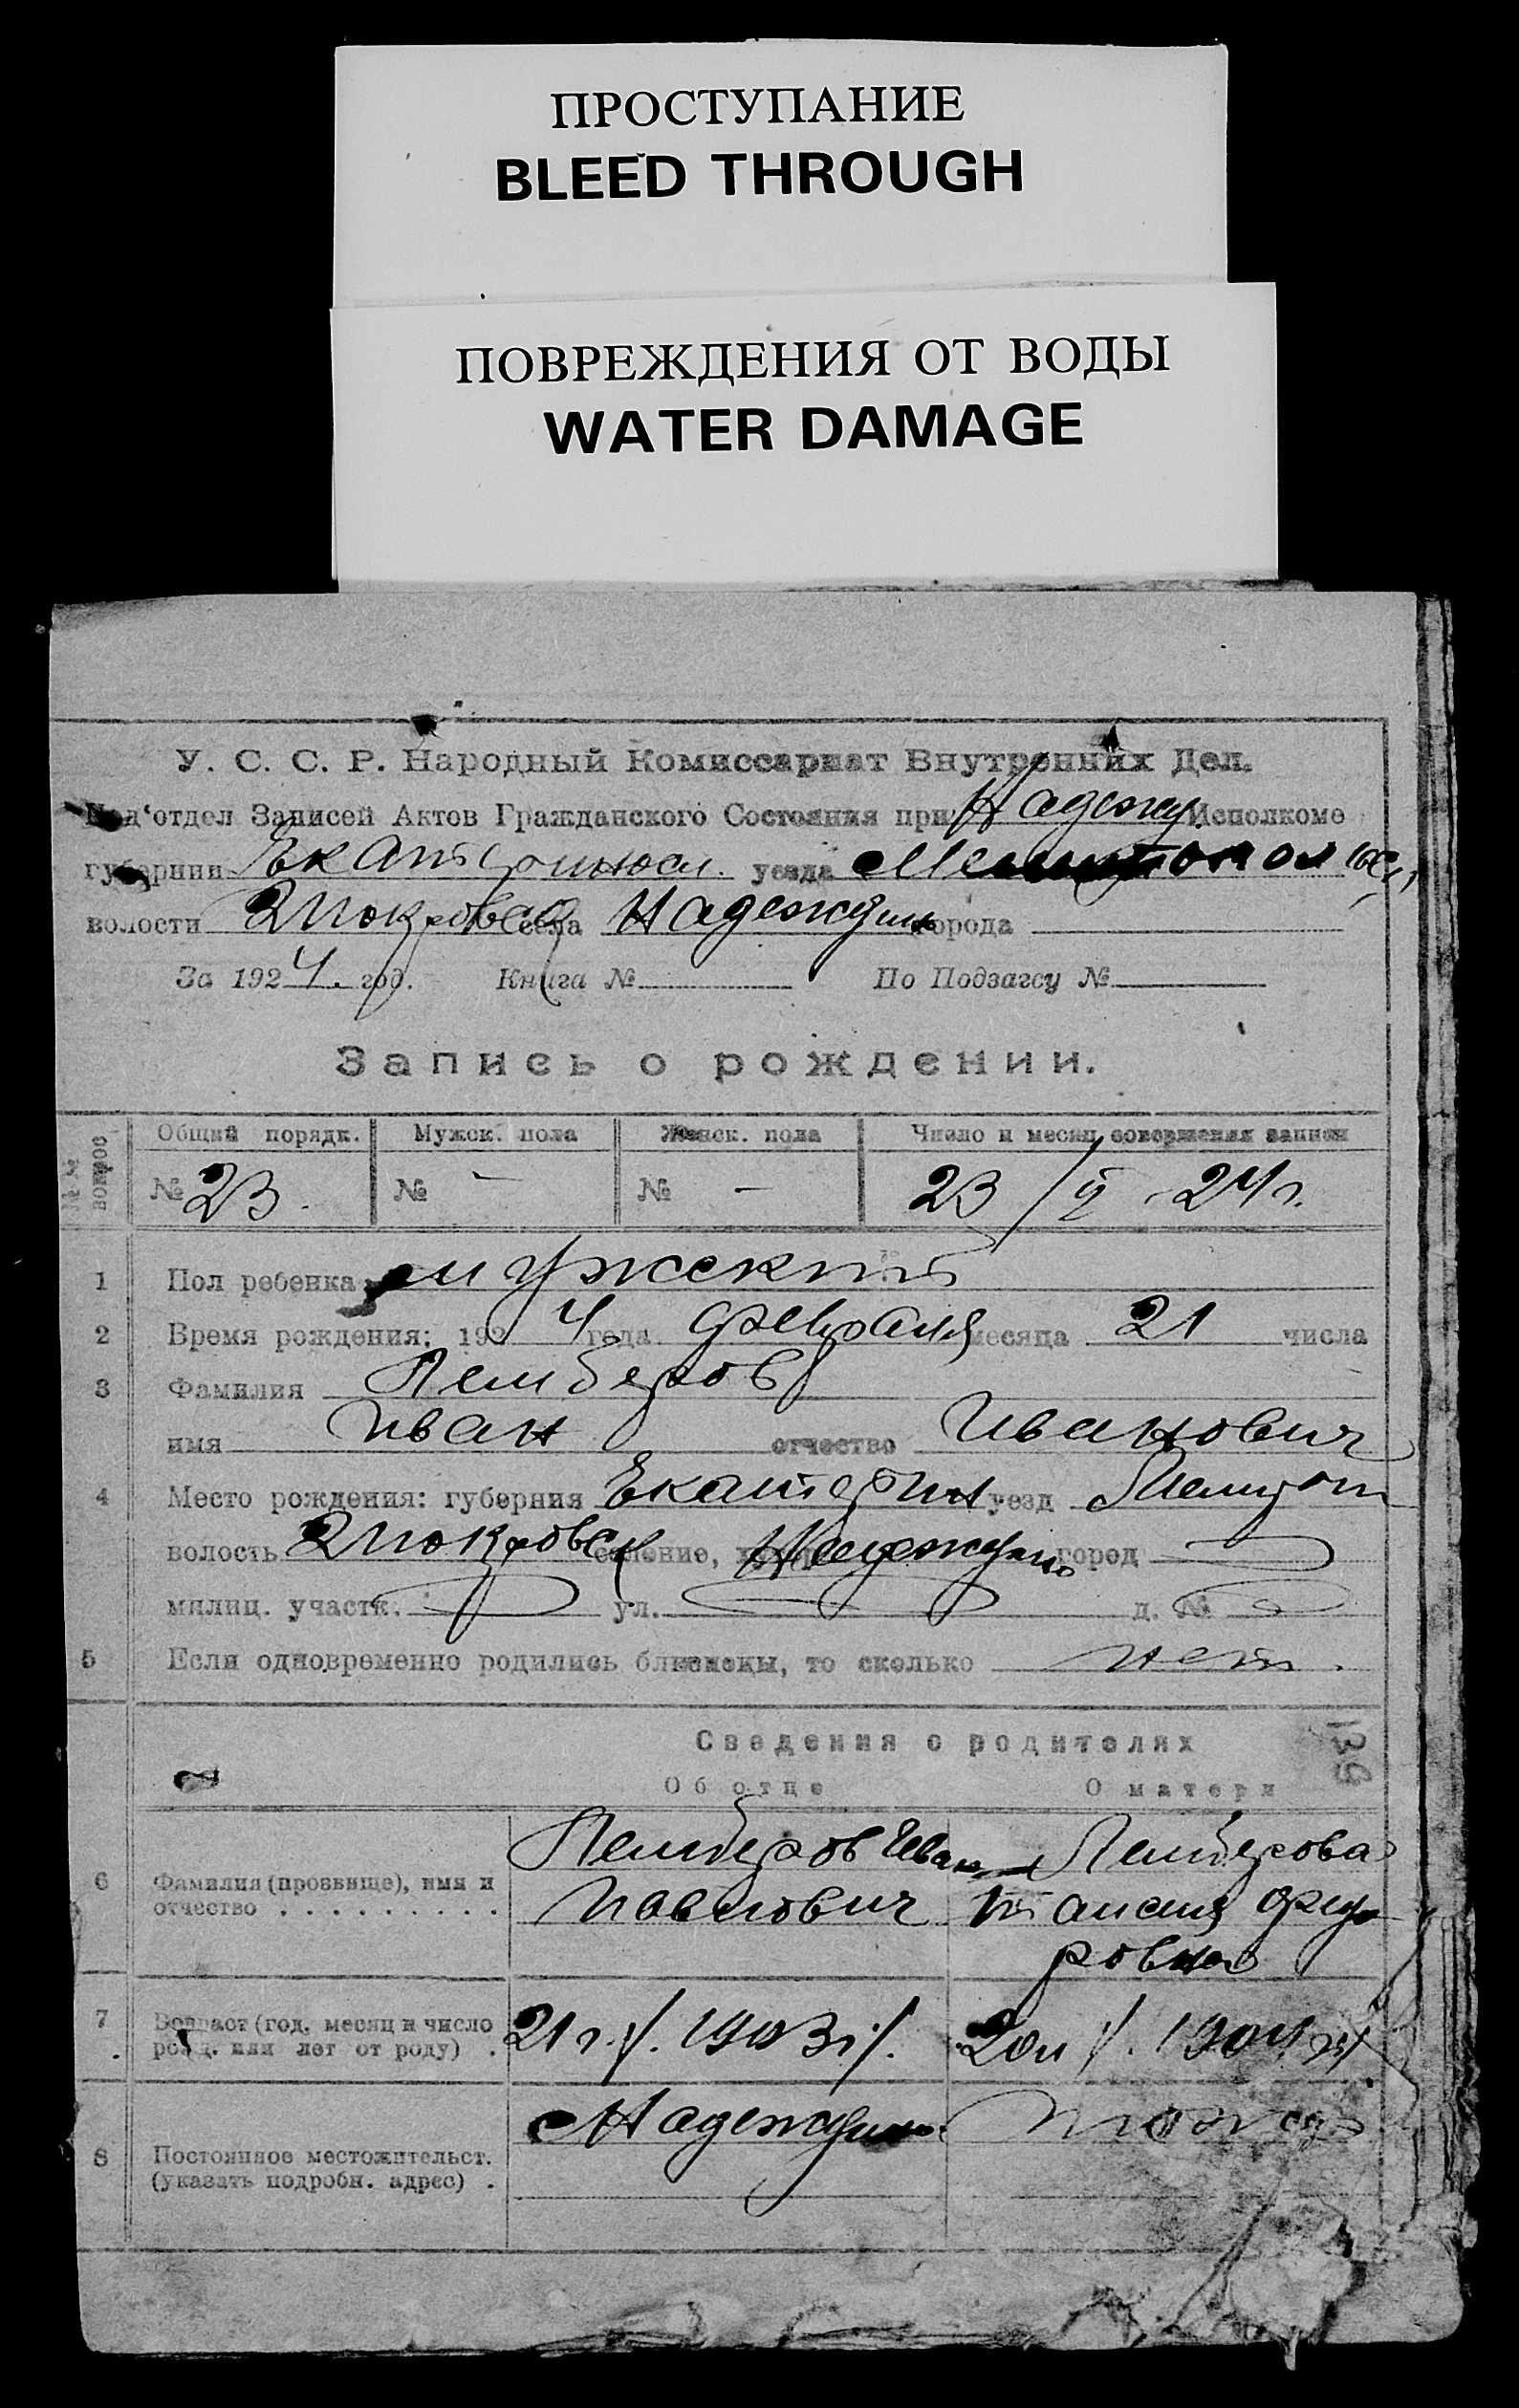 ПРОСТУПАНИЕ
BLEED THROUGH
ПОВРЕЖДЕНИЯ ОТ ВОДЫ
WATER DAMAGE
У. С. С. Р. Народный Комиссариат Внутренних Дел.
Под'отдел Записей Актов Гражданского Состояния при Надежд. Исполкоме
губернии Екатериносл. уезда Мелитопольск
волости 2 Покровск села Надеждино города
За 1924. год. Книга № По Подзагсу №
Запись о рождении.
№ № вопрос
Общий порядк. Мужск. пола Женск. пола Число и месяц совершения записи
№ 23. № - № - 23/II - 24 г.
1 Пол ребенка мужской
2 Время рождения: 1924 года февраля месяца 21 числа
3 Фамилия Лемберов
имя Иван отчество Иванович
4 Место рождения: губерния Екатерин уезд Мелитоп
волость 2 Покровск селение, Надеждино город
милиц. участк. ул. д. №
5 Если одновременно родились близнецы, то сколько нет.
Сведения о родителях
139
Об отце О матери
6 Фамилия (прозвище), имя и отчество . . . . . . . . . Лемберов Иван Лемберова
Павлович Таисия Федо
ровна
7 Возраст (год, месяц и число рожд. или лет от роду) . 21 г. /. 1903 г/. 20 л /. 1904 г/
8 Постоянное местожительст. (указать подробн. адрес) . Надеждино